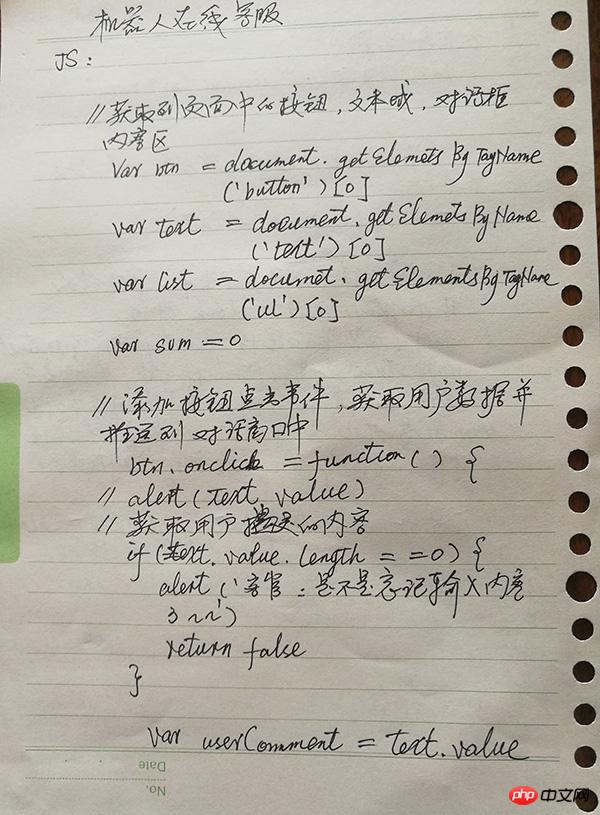 机器人在线客服
JS:
//获取到页面中的按钮,文本域,对话框
内容区
Var btn = document.getElemets By TagName
('button')[0]
var text = document.getElemetsByName
('text')[0]
var list = documet.getElementsByTagName
('ul')[0]
var sum = 0
//添加按钮点击事件,获取用户数据并
推送到对话窗口中
btn.onclick = function() {
// alert(text.value)
//获取用户的内容
if(text.value.length ==0) {
alert('客官:是不是忘记输入内容
了~~')
return false
}
var userComment = text.value
Date
No.
php 中文网